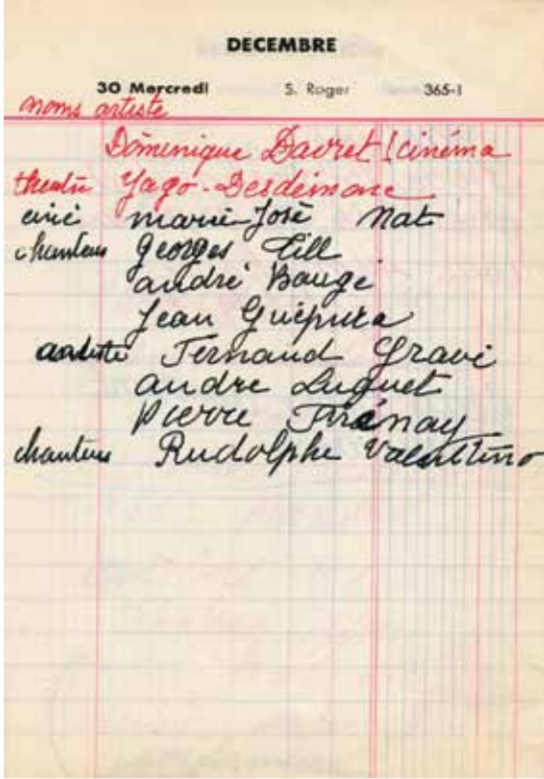 DECEMBRE
30 Mercredi S. Roger 365-1
noms artiste
Dominique Davret (cinéma
theatre Yago-Desdémone
ciné marie-José Nat
chanteus Georges Till
andré Baugé
Jean Guépura
artiste Fernand Gravé
andre Luguet
Pierre Frénay
chanteus Rudolphe Valentino